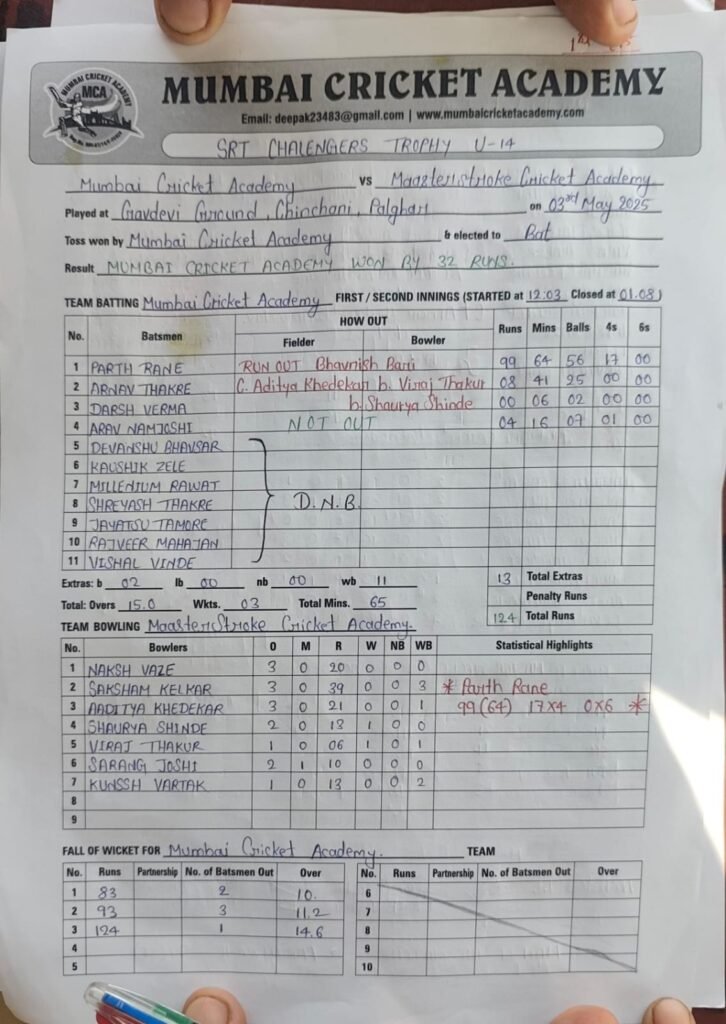 MUMBAI CRICKET ACADEMY
MCA
MUMBAI CRICKET ACADEMY
Email: deepak23483@gmail.com | www.mumbaicricketacademy.com
SRT CHALENGERS TROPHY U-14
Mumbai Cricket Academy vs Maasteristroke Cricket Academy
Played at Gavdevi Ground, Chinchani, Palghar on 03rd May 2025
Toss won by Mumbai Cricket Academy & elected to Bat
Result MUMBAI CRICKET ACADEMY WON BY 32 RUNS.
TEAM BATTING Mumbai Cricket Academy FIRST / SECOND INNINGS (STARTED at 12:03 Closed at 01.08)
No. Batsmen HOW OUT Runs Mins Balls 4s 6s
Fielder Bowler
1 PARTH RANE RUN OUT Bhavnish Bari 99 64 56 17 00
2 ARNAV THAKRE C. Aditya Khedekar b. Viraj Thakur 08 41 25 00 00
3 DARSH VERMA b. Shaurya Shinde 00 06 02 00 00
4 ARAV NAMJOSHI NOT OUT 04 16 07 01 00
5 DEVANSHU BHAVSAR
6 KAUSHIK ZELE
7 MILLENIUM RAWAT
8 SHREYASH THAKRE D.N.B.
9 JAYATSU TAMORE
10 RAJVEER MAHAJAN
11 VISHAL VINDE
Extras: b 02 lb 00 nb 00 wb 11 13 Total Extras
Penalty Runs
Total: Overs 15.0 Wkts. 03 Total Mins. 65 124 Total Runs
TEAM BOWLING MaasteriStroke Cricket Academy.
No. Bowlers O M R W NB WB Statistical Highlights
1 NAKSH VAZE 3 0 20 0 0 0
2 SAKSHAM KELKAR 3 0 39 0 0 3 * Parth Rane
3 AADITYA KHEDEKAR 3 0 21 0 0 1 99 (64) 17x4 0x6 *
4 SHAURYA SHINDE 2 0 13 1 0 0
5 VIRAJ THAKUR 1 0 06 1 0 1
6 SARANG JOSHI 2 1 10 0 0 0
7 KUNSSH VARTAK 1 0 13 0 0 2
8
9
FALL OF WICKET FOR Mumbai Cricket Academy. TEAM
No. Runs Partnership No. of Batsmen Out Over No. Runs Partnership No. of Batsmen Out Over
1 83 2 10. 6
2 93 3 11.2 7
3 124 1 14.6 8
4 9
5 10